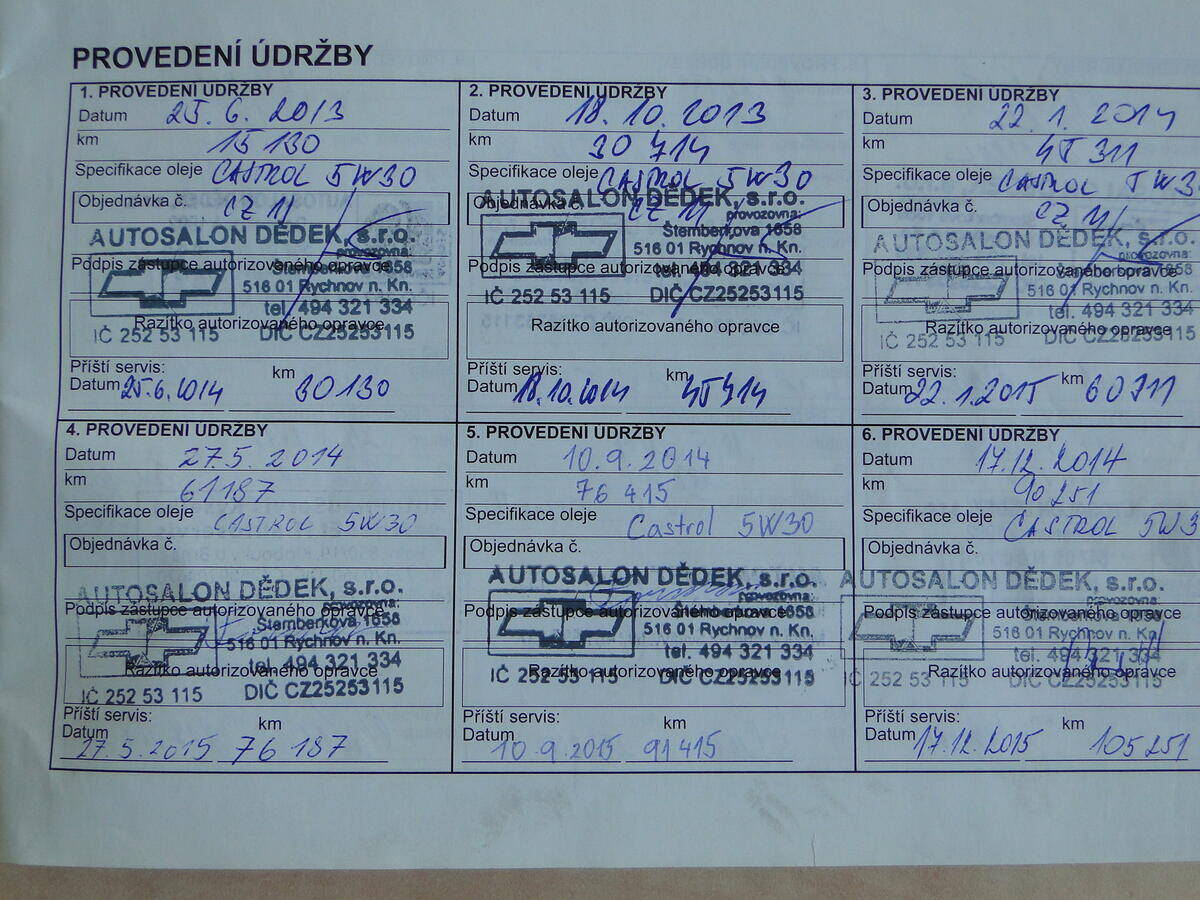 PROVEDENÍ ÚDRŽBY
1. PROVEDENÍ ÚDRŽBY
Datum 25. 6. 2013
km 15 130
Specifikace oleje CASTROL 5W30
Objednávka č. CZ 11
AUTOSALON DĚDEK, s.r.o.
provozovna:
Štemberkova 1658
Podpis zástupce autorizovaného opravce
516 01 Rychnov n. Kn.
tel. 494 321 334
Razítko autorizovaného opravce
IČ 252 53 115 DIČ CZ25253115
Příští servis:
Datum 25.6.2014 km 30130
2. PROVEDENÍ ÚDRŽBY
Datum 18. 10. 2013
km 30 714
Specifikace oleje CASTROL 5W30
Objednávka č. CZ 11
AUTOSALON DĚDEK, s.r.o.
provozovna:
Štemberkova 1658
516 01 Rychnov n. Kn.
Podpis zástupce autorizovaného opravce
tel. 494 321 334
IČ 252 53 115 DIČ CZ25253115
Razítko autorizovaného opravce
Příští servis:
Datum 18.10.2014 km 45714
3. PROVEDENÍ ÚDRŽBY
Datum 22. 1. 2014
km 45 311
Specifikace oleje CASTROL 5W3
Objednávka č. CZ 11
AUTOSALON DĚDEK, s.r.o.
provozovna:
Štemberkova 1658
Podpis zástupce autorizovaného opravce
516 01 Rychnov n. Kn.
tel. 494 321 334
Razítko autorizovaného opravce
IČ 252 53 115 DIČ CZ25253115
Příští servis:
Datum 22.1.2015 km 60311
4. PROVEDENÍ ÚDRŽBY
Datum 27.5. 2014
km 61187
Specifikace oleje CASTROL 5W30
Objednávka č.
AUTOSALON DĚDEK, s.r.o.
provozovna:
Podpis zástupce autorizovaného opravce
Štemberkova 1658
516 01 Rychnov n. Kn.
tel. 494 321 334
Razítko autorizovaného opravce
IČ 252 53 115 DIČ CZ25253115
Příští servis:
Datum 27.5.2015 km 76 187
5. PROVEDENÍ ÚDRŽBY
Datum 10.9.2014
km 76 415
Specifikace oleje Castrol 5W30
Objednávka č.
AUTOSALON DĚDEK, s.r.o.
provozovna:
Podpis zástupce autorizovaného opravce
Štemberkova 1658
516 01 Rychnov n. Kn.
tel. 494 321 334
Razítko autorizovaného opravce
IČ 252 53 115 DIČ CZ25253115
Příští servis:
Datum 10.9.2015 km 91415
6. PROVEDENÍ ÚDRŽBY
Datum 17.12.2014
km 90251
Specifikace oleje CASTROL 5W3
Objednávka č.
AUTOSALON DĚDEK, s.r.o.
provozovna:
Podpis zástupce autorizovaného opravce
Štemberkova 1658
516 01 Rychnov n. Kn.
tel. 494 321 334
Razítko autorizovaného opravce
IČ 252 53 115 DIČ CZ25253115
Příští servis:
Datum 17.12.2015 km 105251